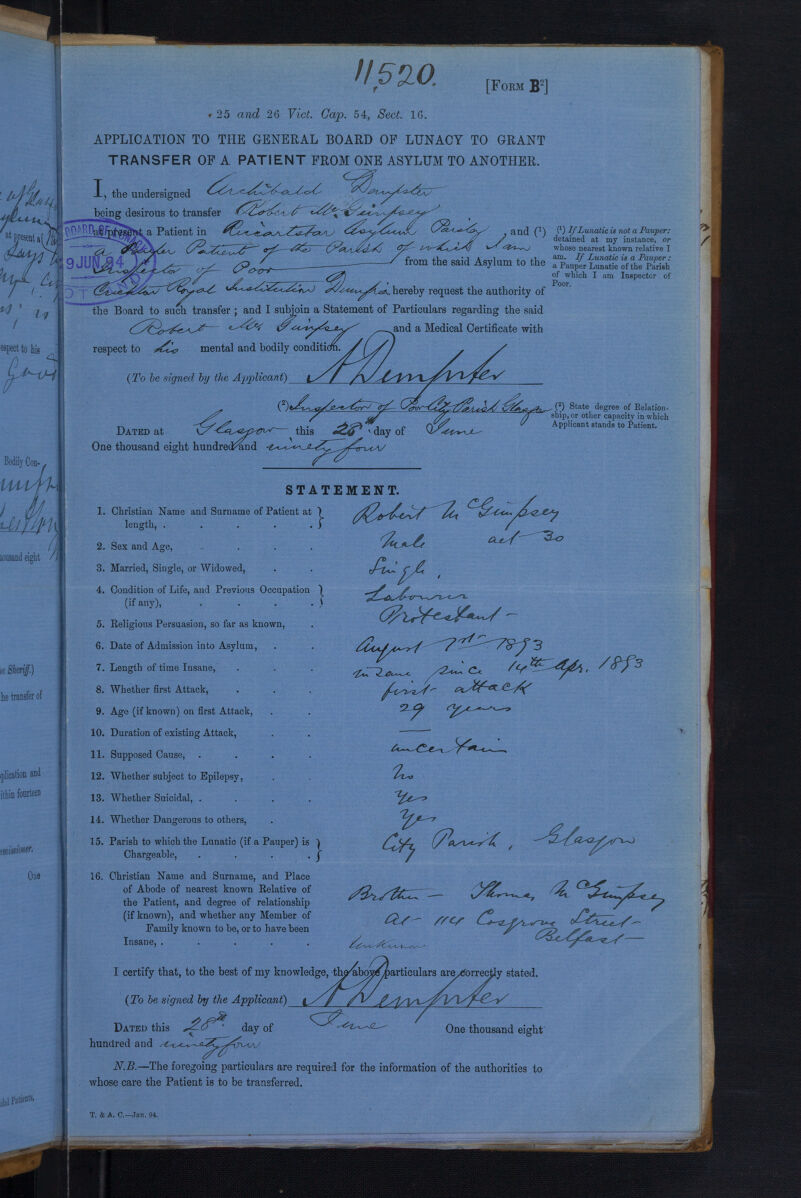 11,520.
[FORM B²]
25 and 26 Vict. Cap. 54, Sect. 16.
APPLICATION TO THE GENERAL BOARD OF LUNACY TO GRANT
TRANSFER OF A PATIENT FROM ONE ASYLUM TO ANOTHER.
I, the undersigned Archibald Dempster
being desirous to transfer Robert McGimpsey
at present a Patient in Riccartsbar Asylum Paisley, and (¹)
Pauper Patient of the Parish of which I am
Inspector of Poor from the said Asylum to the
Crichton Royal Institution Dumfries hereby request the authority of
the Board to such transfer; and I subjoin a Statement of Particulars regarding the said
Robert McGimpsey and a Medical Certificate with
respect to his mental and bodily condition.
(To be signed by the Applicant) A Dempster
(²) Inspector of Poor City Parish Glasgow
DATED at Glasgow this 28th day of June
One thousand eight hundred and ninety four
(¹) If Lunatic is not a Pauper:
detained at my instance, or
whose nearest known relative I
am. If Lunatic is a Pauper:
a Pauper Lunatic of the Parish
of which I am Inspector of
Poor.
(²) State degree of Relation-
ship, or other capacity in which
Applicant stands to Patient.
STATEMENT.
1. Christian Name and Surname of Patient at length, . . . . . Robert McGimpsey
2. Sex and Age, . . . . Male aet 30
3. Married, Single, or Widowed, . . Single
4. Condition of Life, and Previous Occupation (if any), . . . . Labourer
5. Religious Persuasion, so far as known, . Protestant
6. Date of Admission into Asylum, . . August 1st 1893
7. Length of time Insane, . . . insane since 14th Apr. 1893
8. Whether first Attack, . . . first attack
9. Age (if known) on first Attack, . . 29 years
10. Duration of existing Attack, . . —
11. Supposed Cause, . . . . uncertain
12. Whether subject to Epilepsy, . . No
13. Whether Suicidal, . . . . Yes
14. Whether Dangerous to others, . Yes
15. Parish to which the Lunatic (if a Pauper) is Chargeable, . . . . . City Parish, Glasgow
16. Christian Name and Surname, and Place
of Abode of nearest known Relative of
the Patient, and degree of relationship
(if known), and whether any Member of
Family known to be, or to have been
Insane, . . . . .
Brother — Thomas McGimpsey
At 114 Cosgrove Street
Belfast
Unknown
I certify that, to the best of my knowledge, the above particulars are correctly stated.
(To be signed by the Applicant) A Dempster
DATED this 28th day of June One thousand eight
hundred and ninety four
N.B.—The foregoing particulars are required for the information of the authorities to
whose care the Patient is to be transferred.
T. & A. C.—Jan. 94.
BOARD OF LUNACY
29 JUN. 94
at present a
respect to his
Bodily Con-
thousand eight
Sheriff.)
the transfer of
application and
within fourteen
One
Patients.